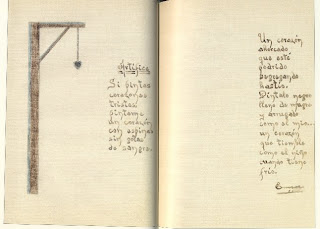 Artífice
Si pintas
corazones
tristes
píntame
un corazón
con espinas
sin gotas
de sangre.
Un corazón
ahorcado
que esté
podrido
de
hastío.
Píntalo negro
lleno de
y arrugado
como el mío...
un corazón
que tiemble
como el
cuando tiene
frío.